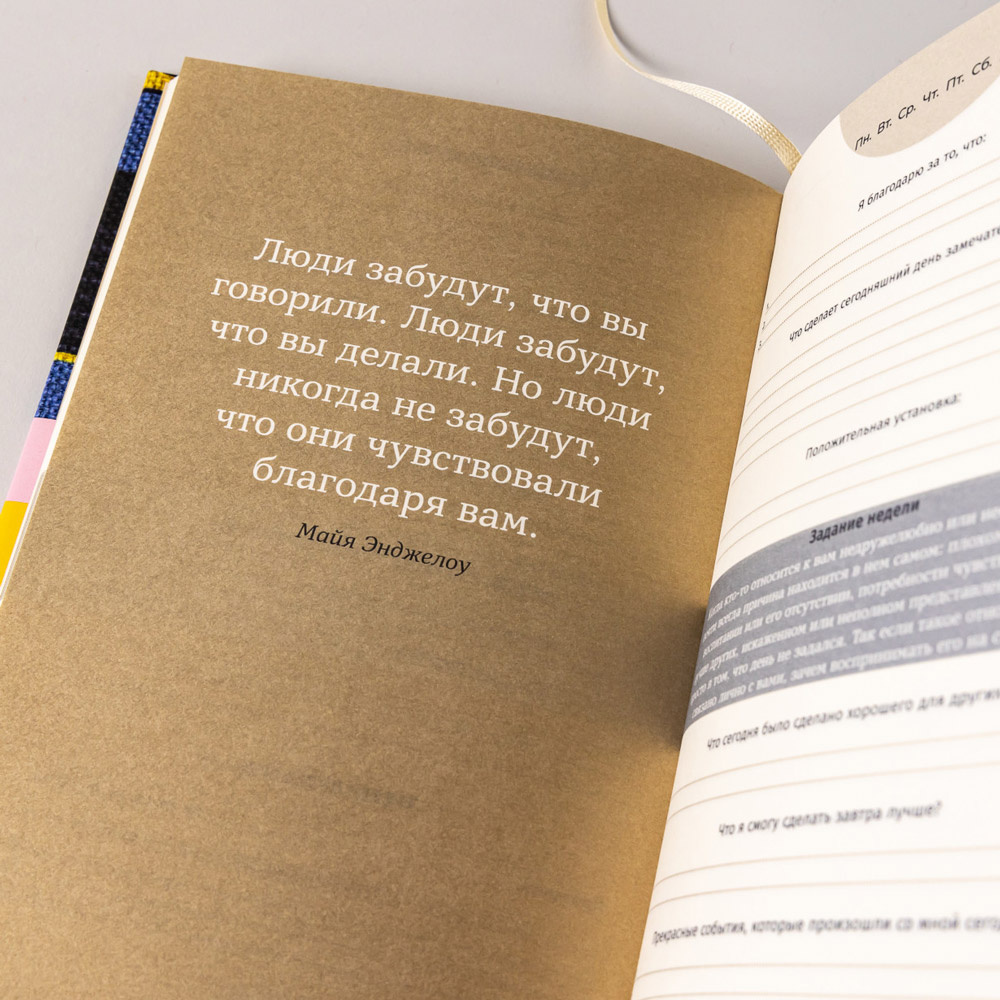 Люди забудут, что вы
говорили. Люди забудут,
что вы делали. Но люди
никогда не забудут,
что они чувствовали
благодаря вам.
Майя Энджелоу
Пн. Вт. Ср. Чт. Пт. Сб.
Я благодарю за то, что:
Что сделает сегодняшний день замечате
1.
2.
3.
Положительная установка:
Задание недели
кто-то относится к вам недружелюбно или
причина находится в нем самом:
воспитании или его отсутствии, потребности
других, искаженном или неполном
в том, что день не задался. Так если такое
связано лично с вами, зачем воспринимать его на
Что сегодня было сделано хорошего для других
Что я смогу сделать завтра лучше?
Прекрасные события, которые произошли со мной